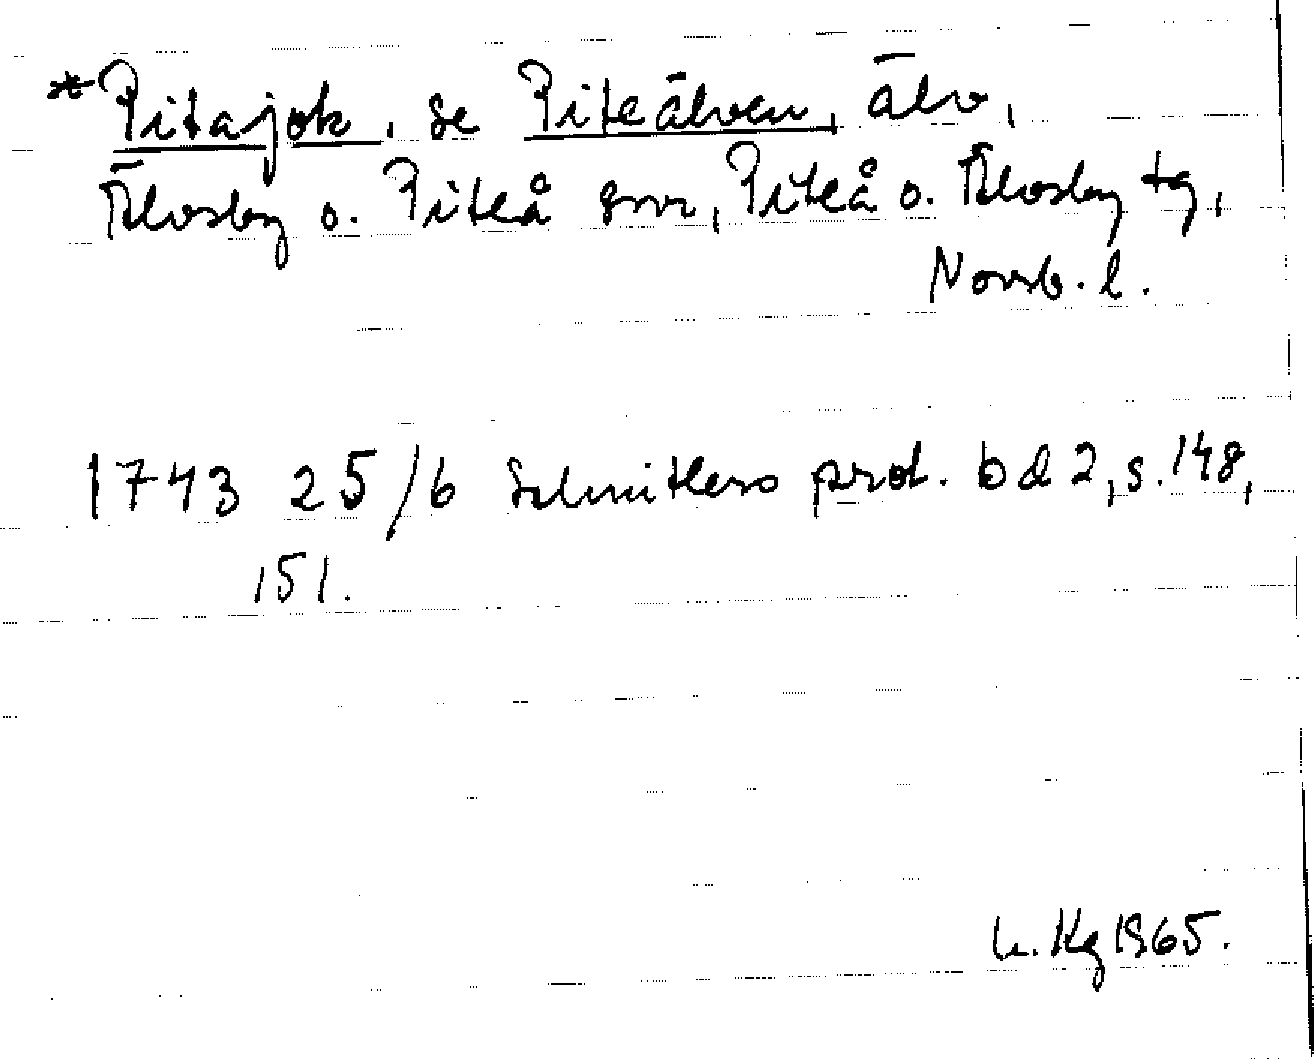 *Pitajok, se Piteälven, älv,
Älvsby o. Piteå snr, Piteå o. Älvsby tg,
Norrb. l.
1743 25/6 Schnitlers prot. bd 2, s. 148,
151.
Kg 1965.